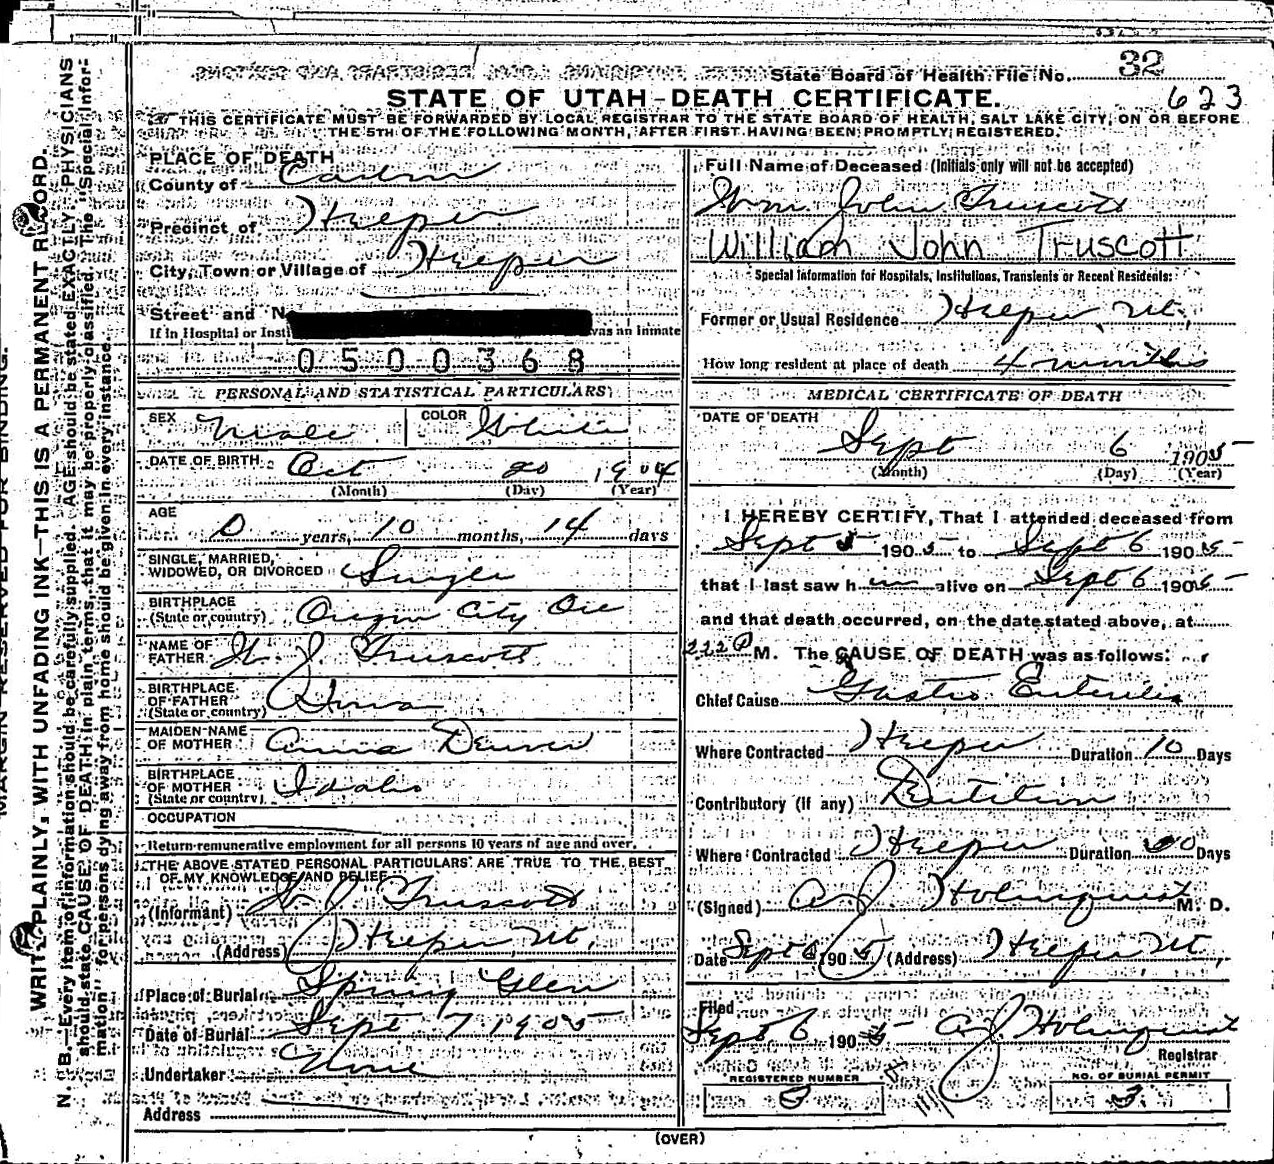 State Board of Health File No. 32
STATE OF UTAH-DEATH CERTIFICATE.
623
THIS CERTIFICATE MUST BE FORWARDED BY LOCAL REGISTRAR TO THE STATE BOARD OF HEALTH, SALT LAKE CITY, ON OR BEFORE
THE 5TH OF THE FOLLOWING MONTH, AFTER FIRST HAVING BEEN PROMPTLY REGISTERED.
MARGIN RESERVED FOR BINDING.
WRITE PLAINLY, WITH UNFADING INK—THIS IS A PERMANENT RECORD.
N. B.—Every item of information should be carefully supplied. AGE should be stated EXACTLY. PHYSICIANS
should state CAUSE OF DEATH in plain terms, that it may be properly classified. The "Special Infor-
mation" for persons dying away from home should be given in every instance.
PLACE OF DEATH
County of Carbon
Precinct of Helper
City, Town or Village of Helper
Street and N
If in Hospital or Insti was an Inmate
0500368
PERSONAL AND STATISTICAL PARTICULARS
SEX Male COLOR White
DATE OF BIRTH Oct 20 1904
(Month) (Day) (Year)
AGE 0 years, 10 months, 14 days
SINGLE, MARRIED,
WIDOWED, OR DIVORCED Single
BIRTHPLACE
(State or country) Oregon City Ore
NAME OF
FATHER W. J. Truscott
BIRTHPLACE
OF FATHER
(State or country) Iowa
MAIDEN NAME
OF MOTHER Anna
BIRTHPLACE
OF MOTHER
(State or country) Idaho
OCCUPATION
Return remunerative employment for all persons 10 years of age and over.
THE ABOVE STATED PERSONAL PARTICULARS ARE TRUE TO THE BEST
OF MY KNOWLEDGE AND BELIEF
(Informant) W. J. Truscott
(Address) Helper Ut.
Place of Burial Spring Glen
Date of Burial Sept 7 1905
Undertaker None
Address
Full Name of Deceased (Initials only will not be accepted)
Wm. John Truscott
William John Truscott
Special Information for Hospitals, Institutions, Transients or Recent Residents:
Former or Usual Residence Helper, Ut.
How long resident at place of death 4 months
MEDICAL CERTIFICATE OF DEATH
DATE OF DEATH
Sept 6 1905
(Month) (Day) (Year)
I HEREBY CERTIFY, That I attended deceased from
Sept 5 1905 to Sept 6 1905
that I last saw him alive on Sept 6 1905
and that death occurred, on the date stated above, at
2:22 P M. The CAUSE OF DEATH was as follows:
Chief Cause Gastro Enteritis
Where Contracted Helper Duration 10 Days
Contributory (if any) Dentition
Where Contracted Helper Duration Days
(Signed) A J Holmquist M. D.
Date Sept 6 1905 (Address) Helper Ut,
Filed
Sept 6 1905 A J Holmquist
Registrar
REGISTERED NUMBER
3
NO. OF BURIAL PERMIT
3
(OVER)